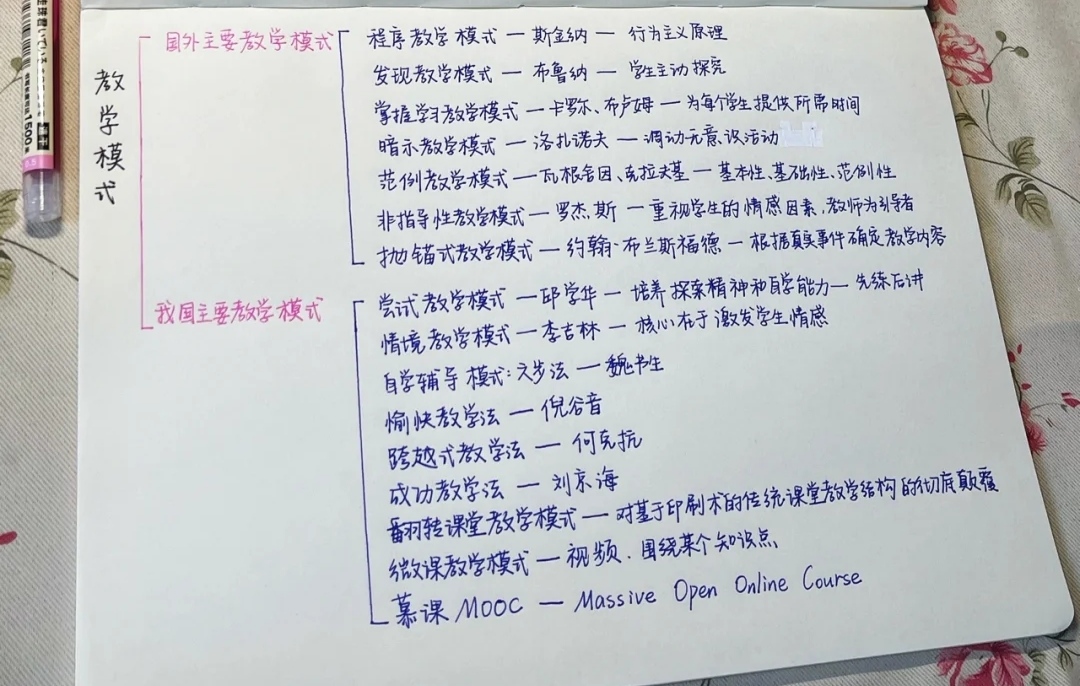 教学模式
国外主要教学模式
程序教学模式 — 斯金纳 — 行为主义原理
发现教学模式 — 布鲁纳 — 学生主动探究
掌握学习教学模式 — 卡罗尔、布卢姆 — 为每个学生提供所需时间
暗示教学模式 — 洛扎诺夫 — 调动无意识活动
范例教学模式 — 瓦根舍因、克拉夫基 — 基本性、基础性、范例性
非指导性教学模式 — 罗杰斯 — 重视学生的情感因素,教师为引导者
抛锚式教学模式 — 约翰·布兰斯福德 — 根据真实事件确定教学内容
我国主要教学模式
尝试教学模式 — 邱学华 — 培养探索精神和自学能力 — 先练后讲
情境教学模式 — 李吉林 — 核心在于激发学生情感
自学辅导模式:六步法 — 魏书生
愉快教学法 — 倪谷音
跨越式教学法 — 何克抗
成功教学法 — 刘京海
翻转课堂教学模式 — 对基于印刷术的传统课堂教学结构的彻底颠覆
微课教学模式 — 视频、围绕某个知识点
慕课 MOOC — Massive Open Online Course
1500